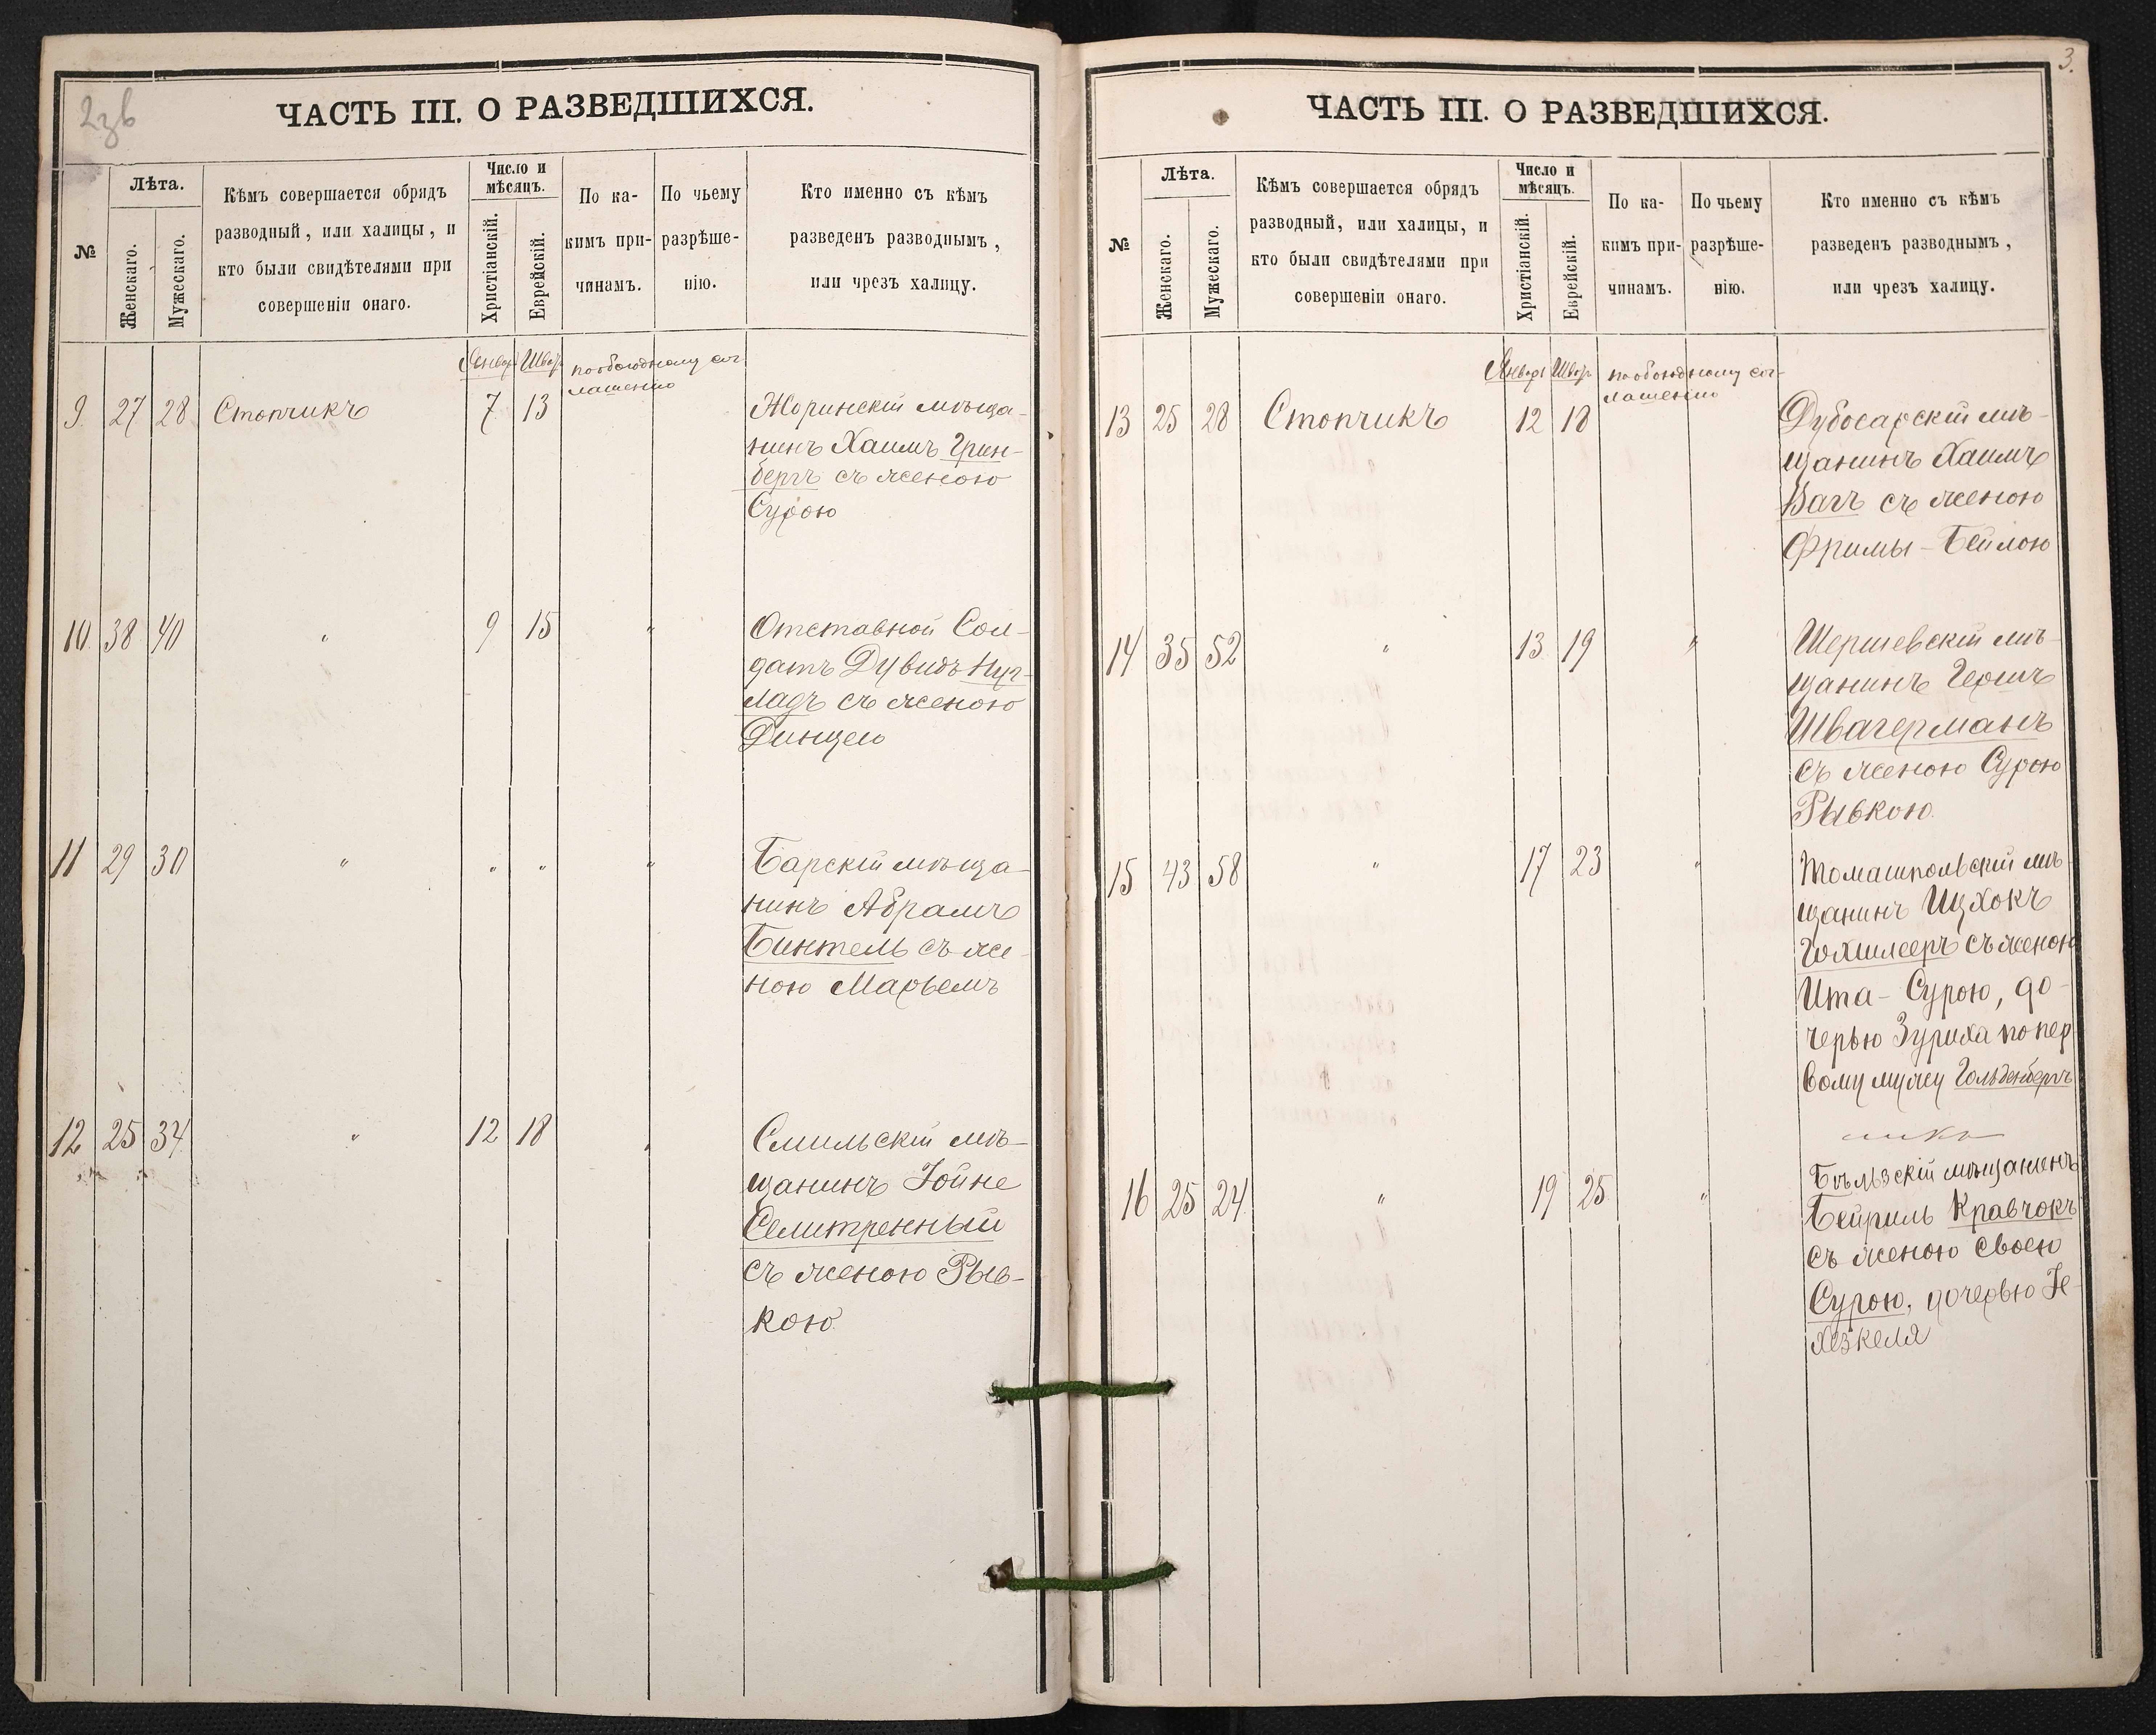 ЧАСТЬ III. О РАЗВЕДШИХСЯ.
№
Лѣта.
Женскаго.
Мужескаго.
Кѣмъ совершается обрядъ
разводный, или халицы, и
кто были свидѣтелями при
совершеніи онаго.
Число и
мѣсяцъ.
Христіанскій.
Еврейскій.
По ка-
кимъ при-
чинамъ.
По чьему
разрѣше-
нію.
Кто именно съ кѣмъ
разведенъ разводнымъ,
или чрезъ халицу.
Январ Шват
по обоюдному сог
лашенію
9. 27 28 Стопчикъ 7 13 Жоринскій мѣща-
нинъ Хаимъ Грин-
бергъ съ женою
Сурою
10 38 40 " 9 15 " Отставной Сол-
датъ Дувидъ
съ женою
Динцею
11 29 30 " " " " Барскій мѣща-
нинъ Абрамъ
Бинтель съ же-
ною Марьемъ
12 25 34 " 12 18 " Смильскій мѣ-
щанинъ Іойне
Селитренный
съ женою Рыв-
кою
3.
ЧАСТЬ III. О РАЗВЕДШИХСЯ.
№
Лѣта.
Женскаго.
Мужескаго.
Кѣмъ совершается обрядъ
разводный, или халицы, и
кто были свидѣтелями при
совершеніи онаго.
Число и
мѣсяцъ.
Христіанскій.
Еврейскій.
По ка-
кимъ при-
чинамъ.
По чьему
разрѣше-
нію.
Кто именно съ кѣмъ
разведенъ разводнымъ,
или чрезъ халицу.
Январ Шват
по обоюдному сог-
лашенію
13 25 28 Стопчикъ 12 18 Дубосарскій мѣ-
щанинъ Хаимъ
Вагъ съ женою
Фримы-Бейлою
14 35 52 " 13 19 " Шершевскій мѣ-
щанинъ Гершъ
Швагерманъ
съ женою Сурою
Рывкою.
15 43 58 " 17 23 " Томашпольскій мѣ
щанинъ Ицхокъ
съ женою
Ита-Сурою, до-
черью Зуриха по пер
вому мужу Гольденбергъ
16 25 24 " 19 25 " Бѣльзскій мѣщанинъ
Бейриль Кравчокъ
съ женою своею
Сурою, дочерью Іе-
хезкеля